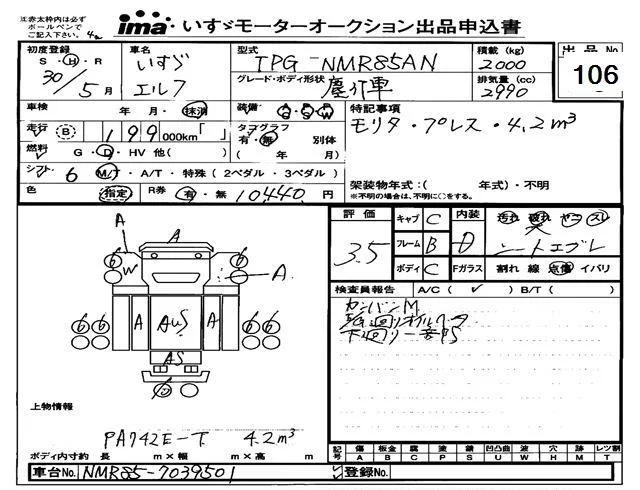 注)赤太枠内は必ず
ボールペンで
ご記入下さい。
ima いすゞモーターオークション出品申込書
初度登録
S ・ H ・ R
30/5月
車名
いすゞ
エルフ
型式
TPG-NMR85AN
グレード・ボディ形状
塵芥車
積載 (kg)
2000
排気量 (cc)
2990
出品 No
106
車検 年・月・抹消
装備
特記事項
モリタ・プレス・4.2m³
走行 B 199 000km「 」
タコグラフ
有・無 別体
( 年 月)
燃料 G・D・HV 他( )
シフト 6 M/T・A/T・特殊(2ペダル・3ペダル)
架装物年式:( 年式)・不明
※不明の場合は、不明に○をする。
色 指定 R券 有・無 10440円
評価
3.5
キャブ C
フレーム B
ボディ C
内装 D
Fガラス
汚れ 破れ ヤコゲ スレ
シートエグレ
割れ 線 点傷 イバリ
検査員報告 A/C( ✓ ) B/T( )
カンバンM
下回り一部PS
A
A
6
6
W
A
6 6
A
AuS
A
A
6 6
AS
上物情報
PA742E-T 4.2m³
ボディ内寸約 長 m×幅 m×高 m
記号 傷 板金 腐 塗 錆 凹凸曲 波 穴 跡 レツ割
A B C P S U W H M T
車台No. NMR85-7039501
登録No.